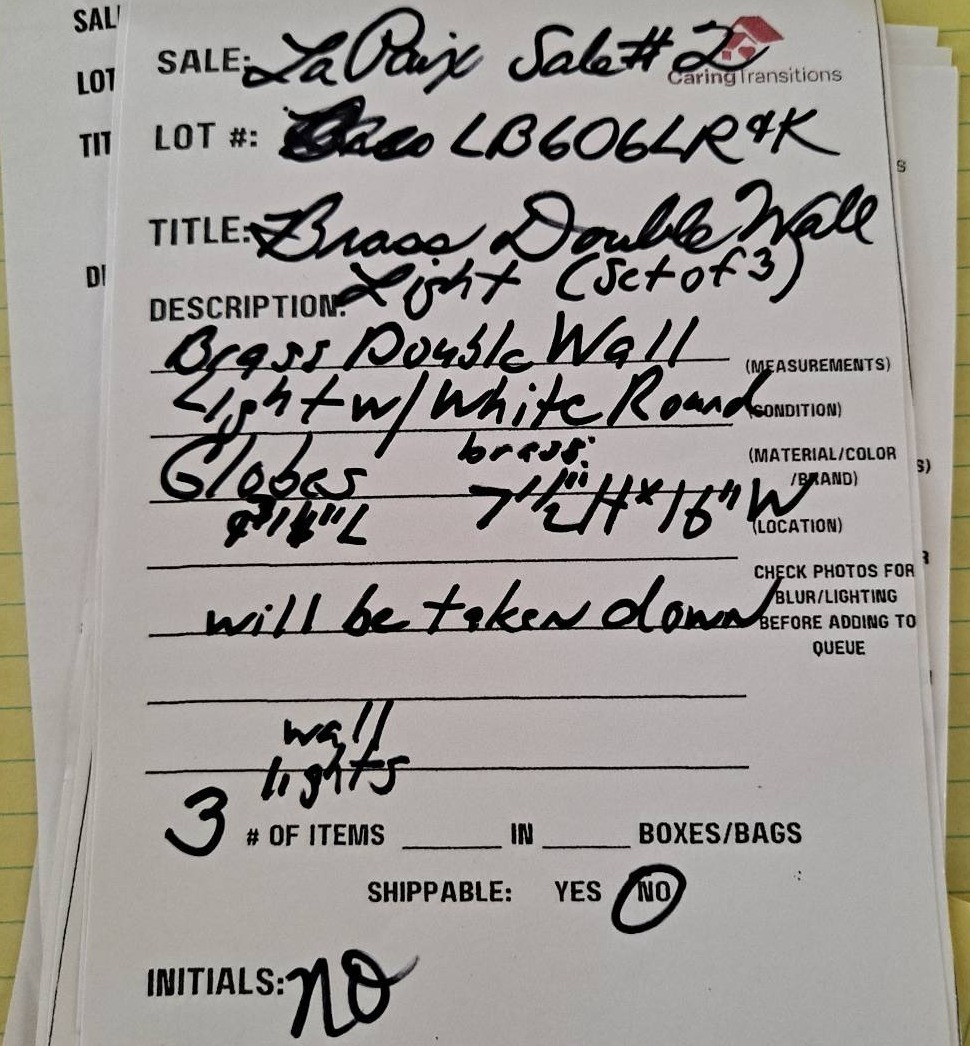 SAL
LOT
TIT
SALE: La Paix Sale# 2
CaringTransitions
LOT #: LB606LR&K
TITLE: Brass Double Wall
Light (Set of 3)
DESCRIPTION:
Brass Double Wall
(MEASUREMENTS)
Light w/ White Round
(CONDITION)
Globes brass:
(MATERIAL/COLOR
/BRAND)
7 1/2"H x 16" W
(LOCATION)
CHECK PHOTOS FOR
BLUR/LIGHTING
BEFORE ADDING TO
QUEUE
will be taken down
wall
lights
3 # OF ITEMS ____ IN ____ BOXES/BAGS
SHIPPABLE: YES NO
INITIALS: NO